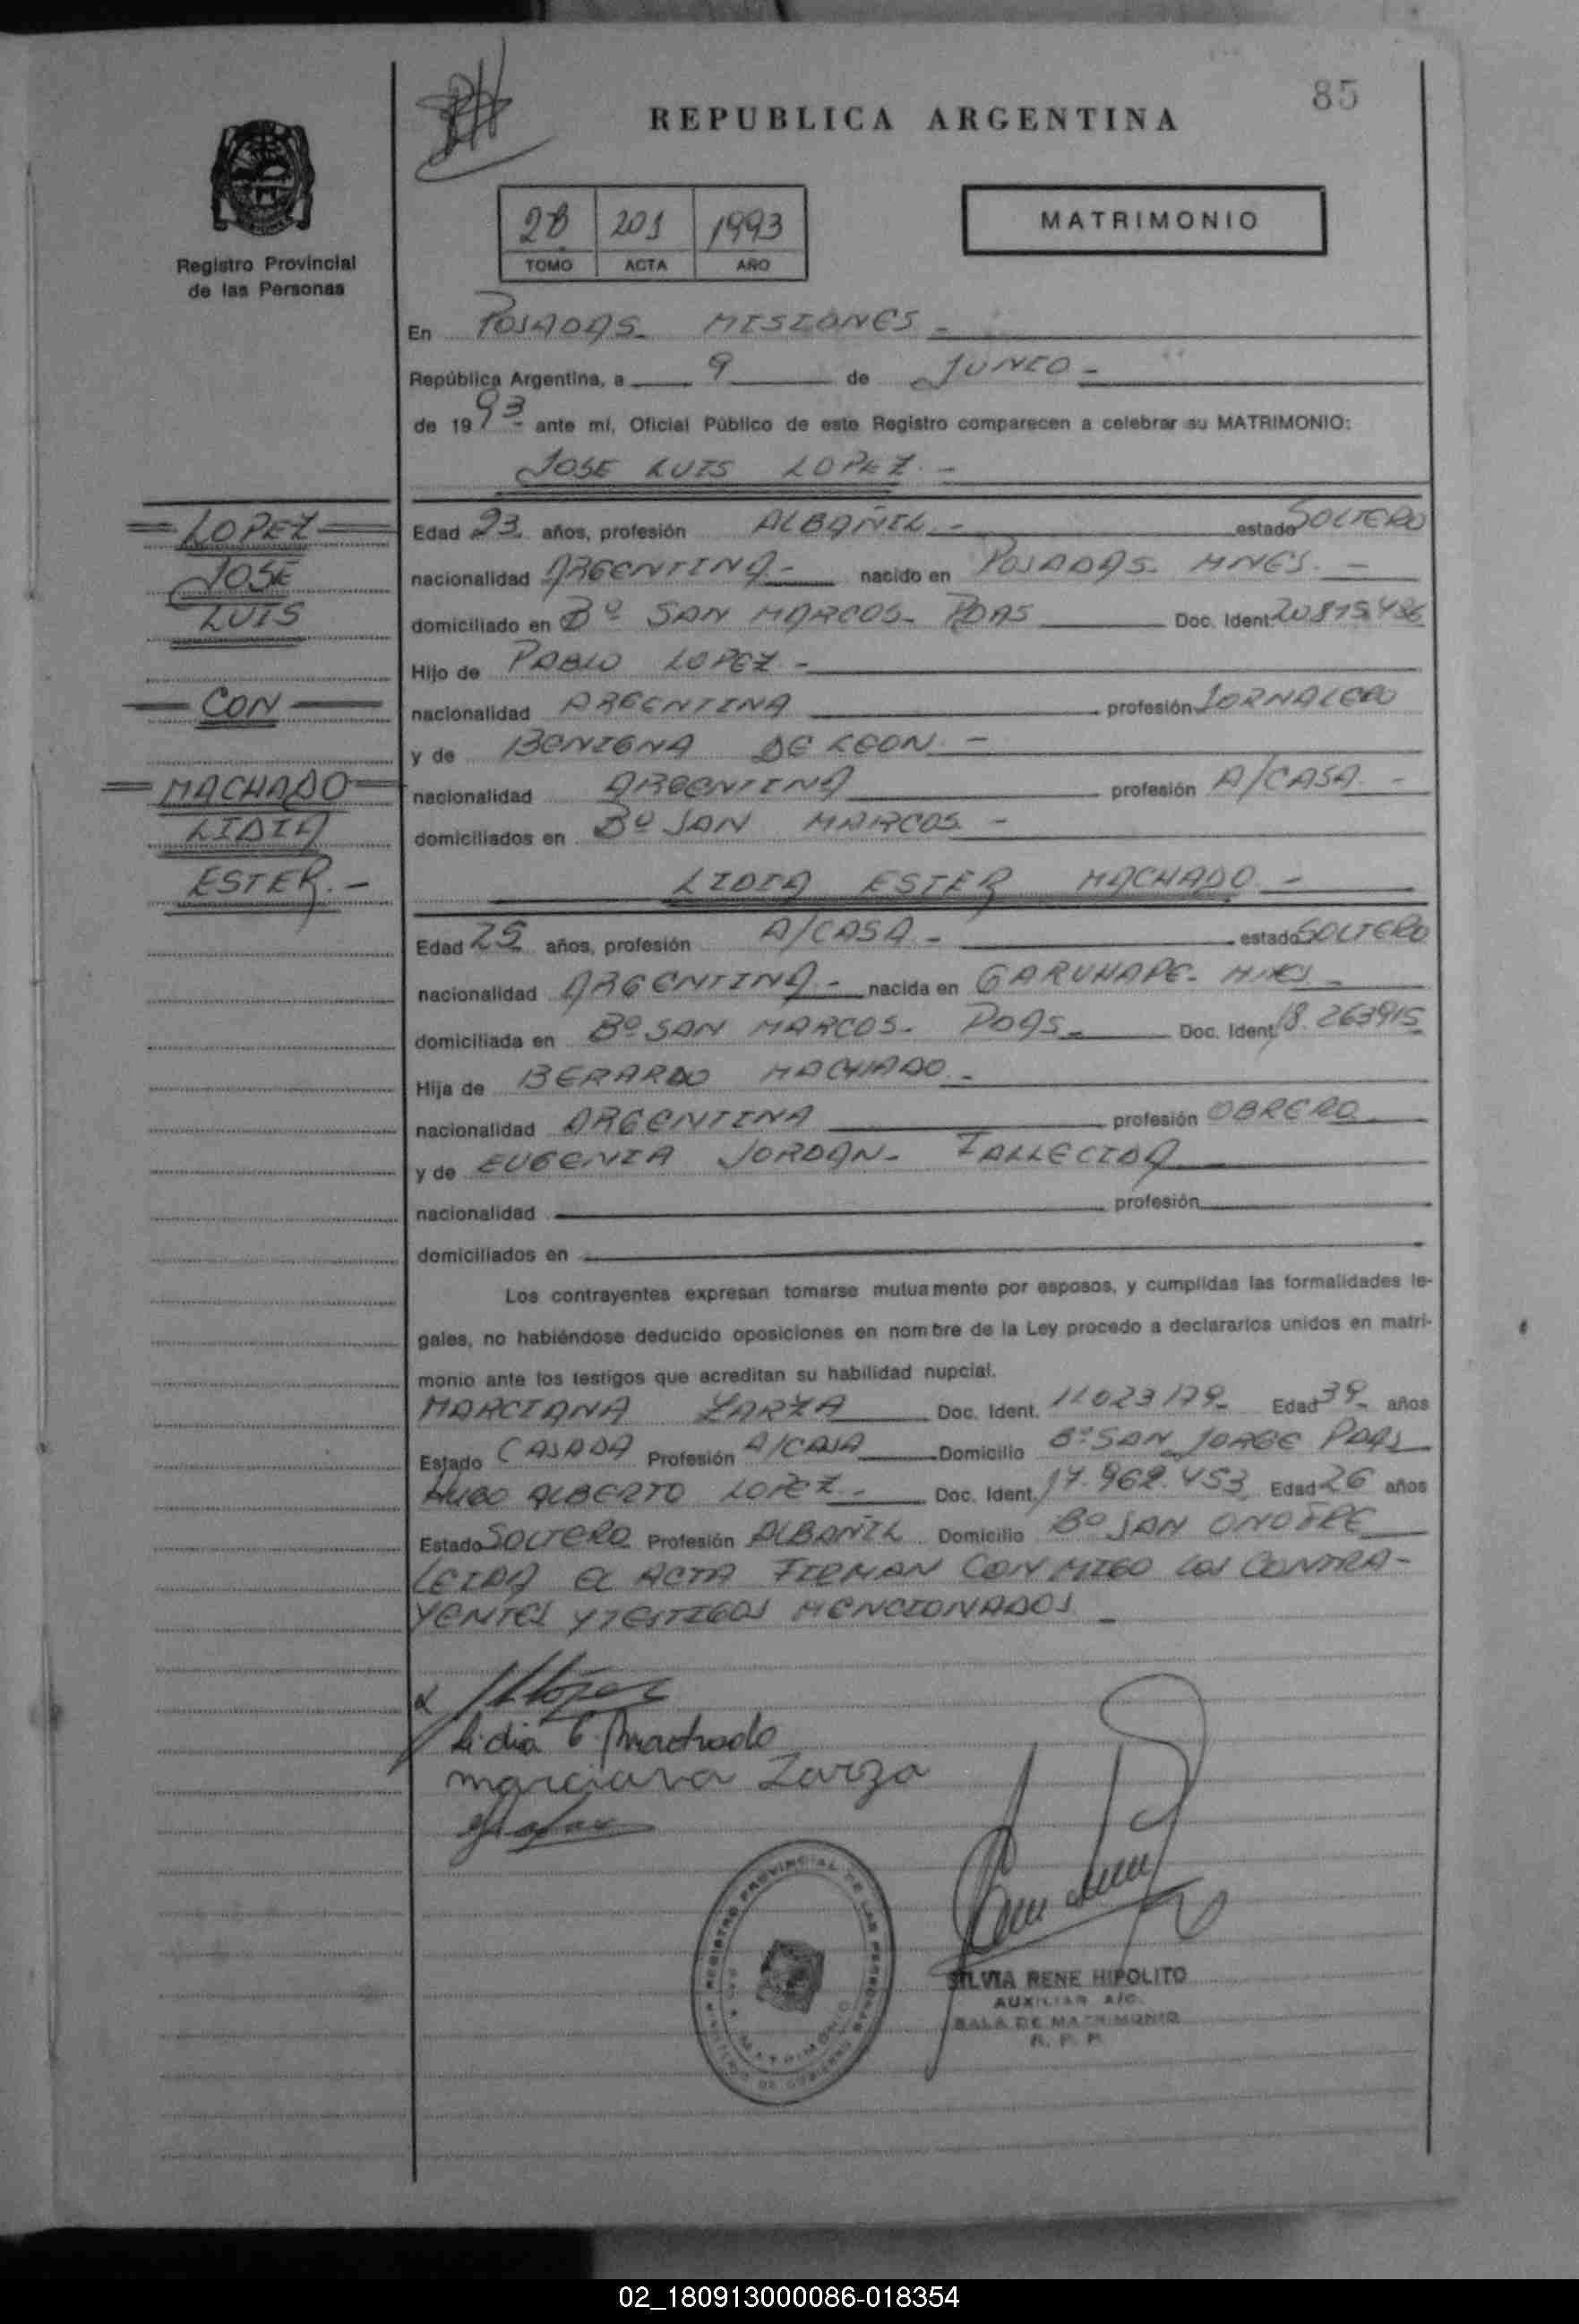 85
REPUBLICA ARGENTINA
Registro Provincial
de las Personas
2B 201 1993
TOMO ACTA AÑO
MATRIMONIO
En POSADAS - MISIONES -
República Argentina, a 9 de JUNIO -
de 1993 ante mí, Oficial Público de este Registro comparecen a celebrar su MATRIMONIO:
JOSE LUIS LOPEZ. -
LOPEZ
JOSE
LUIS
CON
MACHADO
LIDIA
ESTER. -
Edad 23 años, profesión ALBAÑIL - estado SOLTERO
nacionalidad ARGENTINA - nacido en POSADAS - MNES. -
domiciliado en Bº SAN MARCOS - PDAS Doc. Ident.
Hijo de PABLO LOPEZ -
nacionalidad ARGENTINA profesión JORNALERO
y de BENIGNA DE LEON. -
nacionalidad ARGENTINA profesión A/CASA. -
domiciliados en Bº SAN MARCOS -
LIDIA ESTER MACHADO -
Edad 25 años, profesión A/CASA - estado SOLTERO
nacionalidad ARGENTINA - nacida en GARUHAPE - MNES -
domiciliada en Bº SAN MARCOS - PDAS - Doc. Ident. 18.263915
Hija de BERARDO MACHADO -
nacionalidad ARGENTINA profesión OBRERO
y de EUGENIA JORDAN - FALLECIDA
nacionalidad profesión
domiciliados en
Los contrayentes expresan tomarse mutuamente por esposos, y cumplidas las formalidades le-
gales, no habiéndose deducido oposiciones en nombre de la Ley procedo a declararlos unidos en matri-
monio ante los testigos que acreditan su habilidad nupcial.
MARCIANA ZARZA Doc. Ident. 11023179 - Edad 39 años
Estado CASADA Profesión A/CASA Domicilio Bº SAN JORGE PDAS
HUGO ALBERTO LOPEZ - Doc. Ident. 17.962.453 Edad 26 años
Estado SOLTERO Profesión ALBAÑIL Domicilio Bº SAN ONOFRE
LEIDA EL ACTA FIRMAN CONMIGO LOS CONTRA-
YENTES Y TESTIGOS MENCIONADOS -
Lidia E. Machado
marciana Zarza
REGISTRO PROVINCIAL DE LAS PERSONAS
MATRIMONIO
SILVIA RENE HIPOLITO
AUXILIAR A/C.
SALA DE MATRIMONIO
R. P. P.
02_180913000086-018354